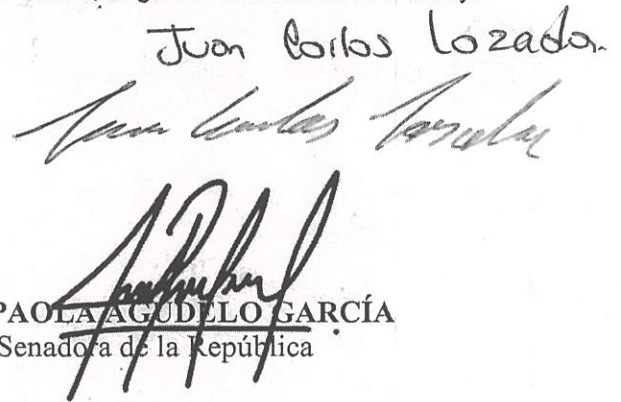 Juan Carlos Lozada.
Juan Carlos Lozada
PAOLA AGUDELO GARCÍA
Senadora de la República